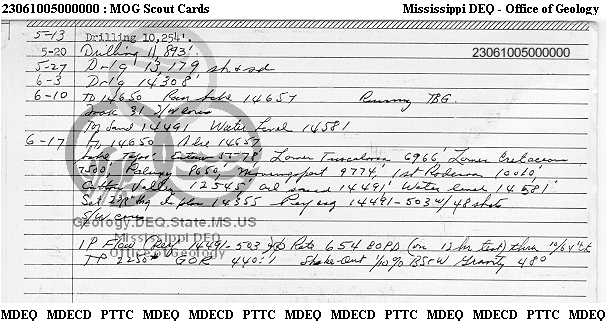 23061005000000 : MOG Scout Cards Mississippi DEQ - Office of Geology
5-13 Drilling 10,254'.
5-20 Drilling 11,893'.
23061005000000
5-27 Drlg 13,179 sh & sd
6-3 Drlg 14,308'
6-10 TD 14650 14657 Running TBG.
Took 31 S/W cores
Top Sand 14491 Water Level 14581
6-17 TD 14650 Alse 14657
Tops: Eutaw 5578', Lower Tuscaloosa 6966', Lower Cretaceous
7500', Paluxy 8650', Mooringsport 9774', 1st Rodessa 10010',
Cotton Valley 12545' Oil sand 14491' Water level 14581'
Set 14555 Perf csg 14491-503 w/48 shots
S/W cores
Geology.DEQ.State.MS.US
Mississippi DEQ
Office of Geology
IP Flow Perf 14491-503 Rate 654 BOPD (on 12 hr test) thru 10/64" ck
TP 2250# GOR 440:1 Shake-Out 1/10% BS&W Gravity 48°
MDEQ MDECD PTTC MDEQ MDECD PTTC MDEQ MDECD PTTC MDEQ